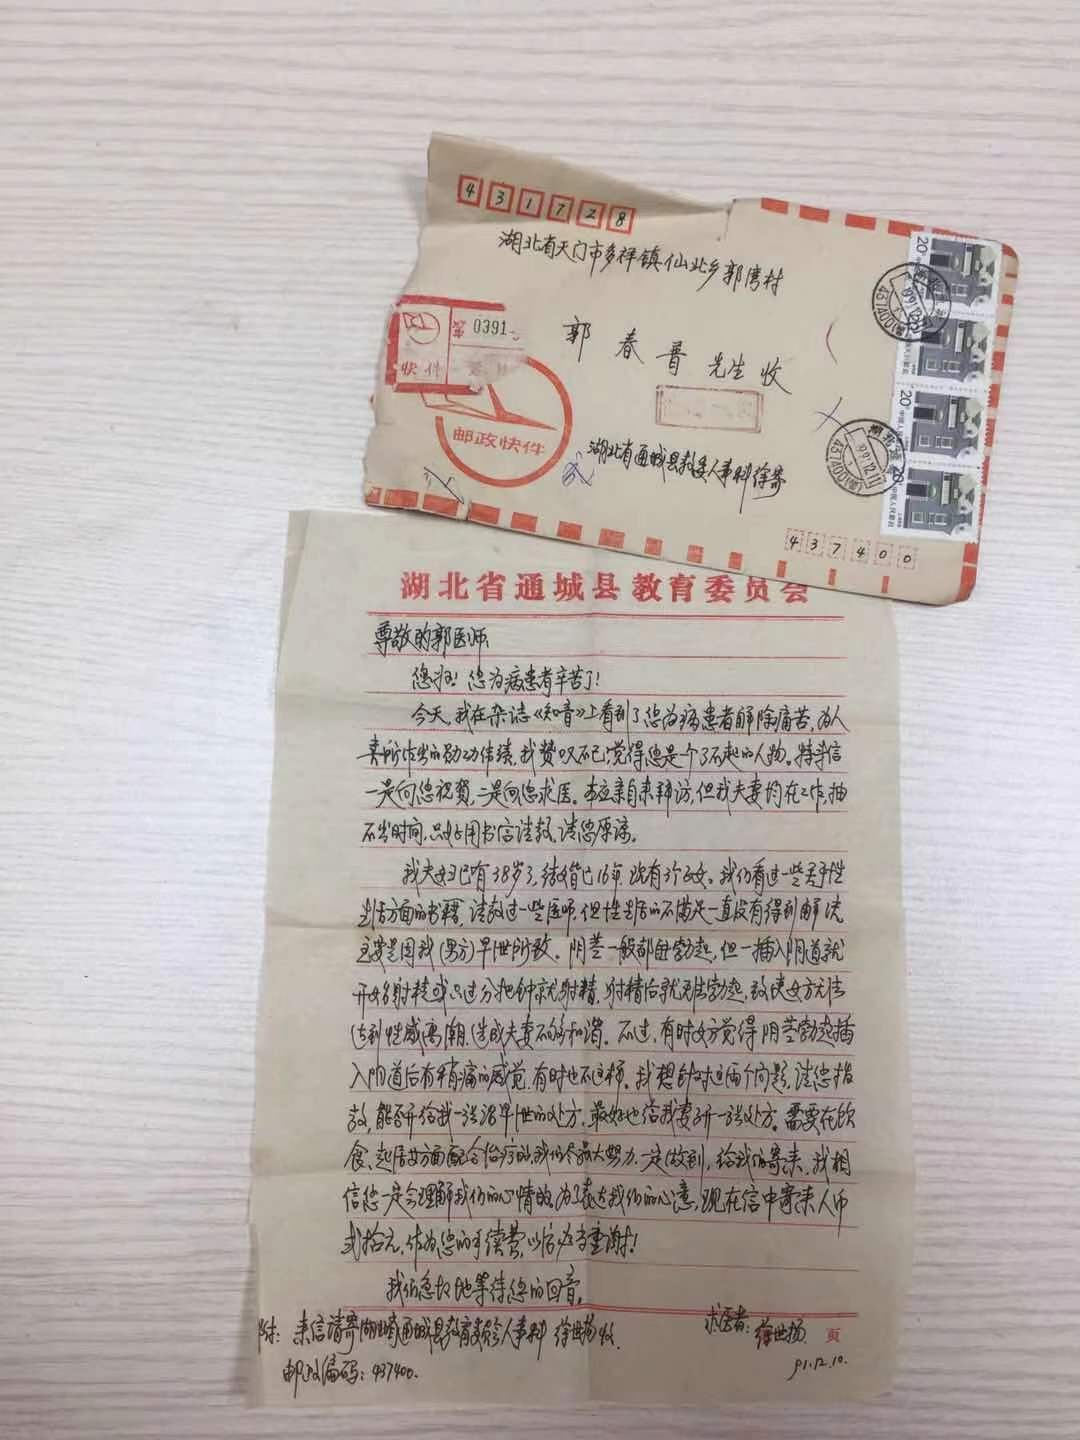 431728
湖北省天门市多祥镇仙北乡郭湾村
郭春普先生收
湖北省通城县教委人事科徐寄
0391
快件
邮政快件
437400
20
20
湖北省通城县教育委员会
尊敬的郭医师:
您好!您为病患者辛苦了!
今天,我在杂誌《知音》上看到了您为病患者解除痛苦,为人
类所作出的功伟绩,我赞叹不已,觉得您是个了不起的人物。特写信
一是向您祝贺,二是向您求医。本应亲自来拜访,但我夫妻均在工作,抽
不出时间,只好用书信请教,请您原谅。
我夫妇已有38岁了,结婚已16年,现有3个子女。我们看过一些关于性
生活方面的书籍,请教过一些医师,但性生活的不满足一直没有得到解决
主要是因我(男方)早泄所致。阴茎一般都能勃起,但一插入阴道就
开始射精或只过分把钟就射精,射精后就无法勃起,致使女方无法
达到性感高潮,造成夫妻不够和谐。不过,有时女方觉得阴茎勃起插
入阴道后有稍痛的感觉,有时也不这样。我想针对这两个问题,请您指
教,能否开给我一张治早泄的处方,最好也给我妻子开一张处方。需要在饮
食、起居等方面配合治疗的,我们尽最大努力,一定做到,给我们寄来,我相
信您一定会理解我们的心情的,为了表达我们的心意,现在信中寄来人币
贰拾元,作为您的手续费,以后必当重谢!
我们急切地等待您的回音。
求医者:徐世扬
页
附:来信请寄湖北省通城县教育委员会人事科 徐世扬收.
邮政编码:437400.
91.12.10.